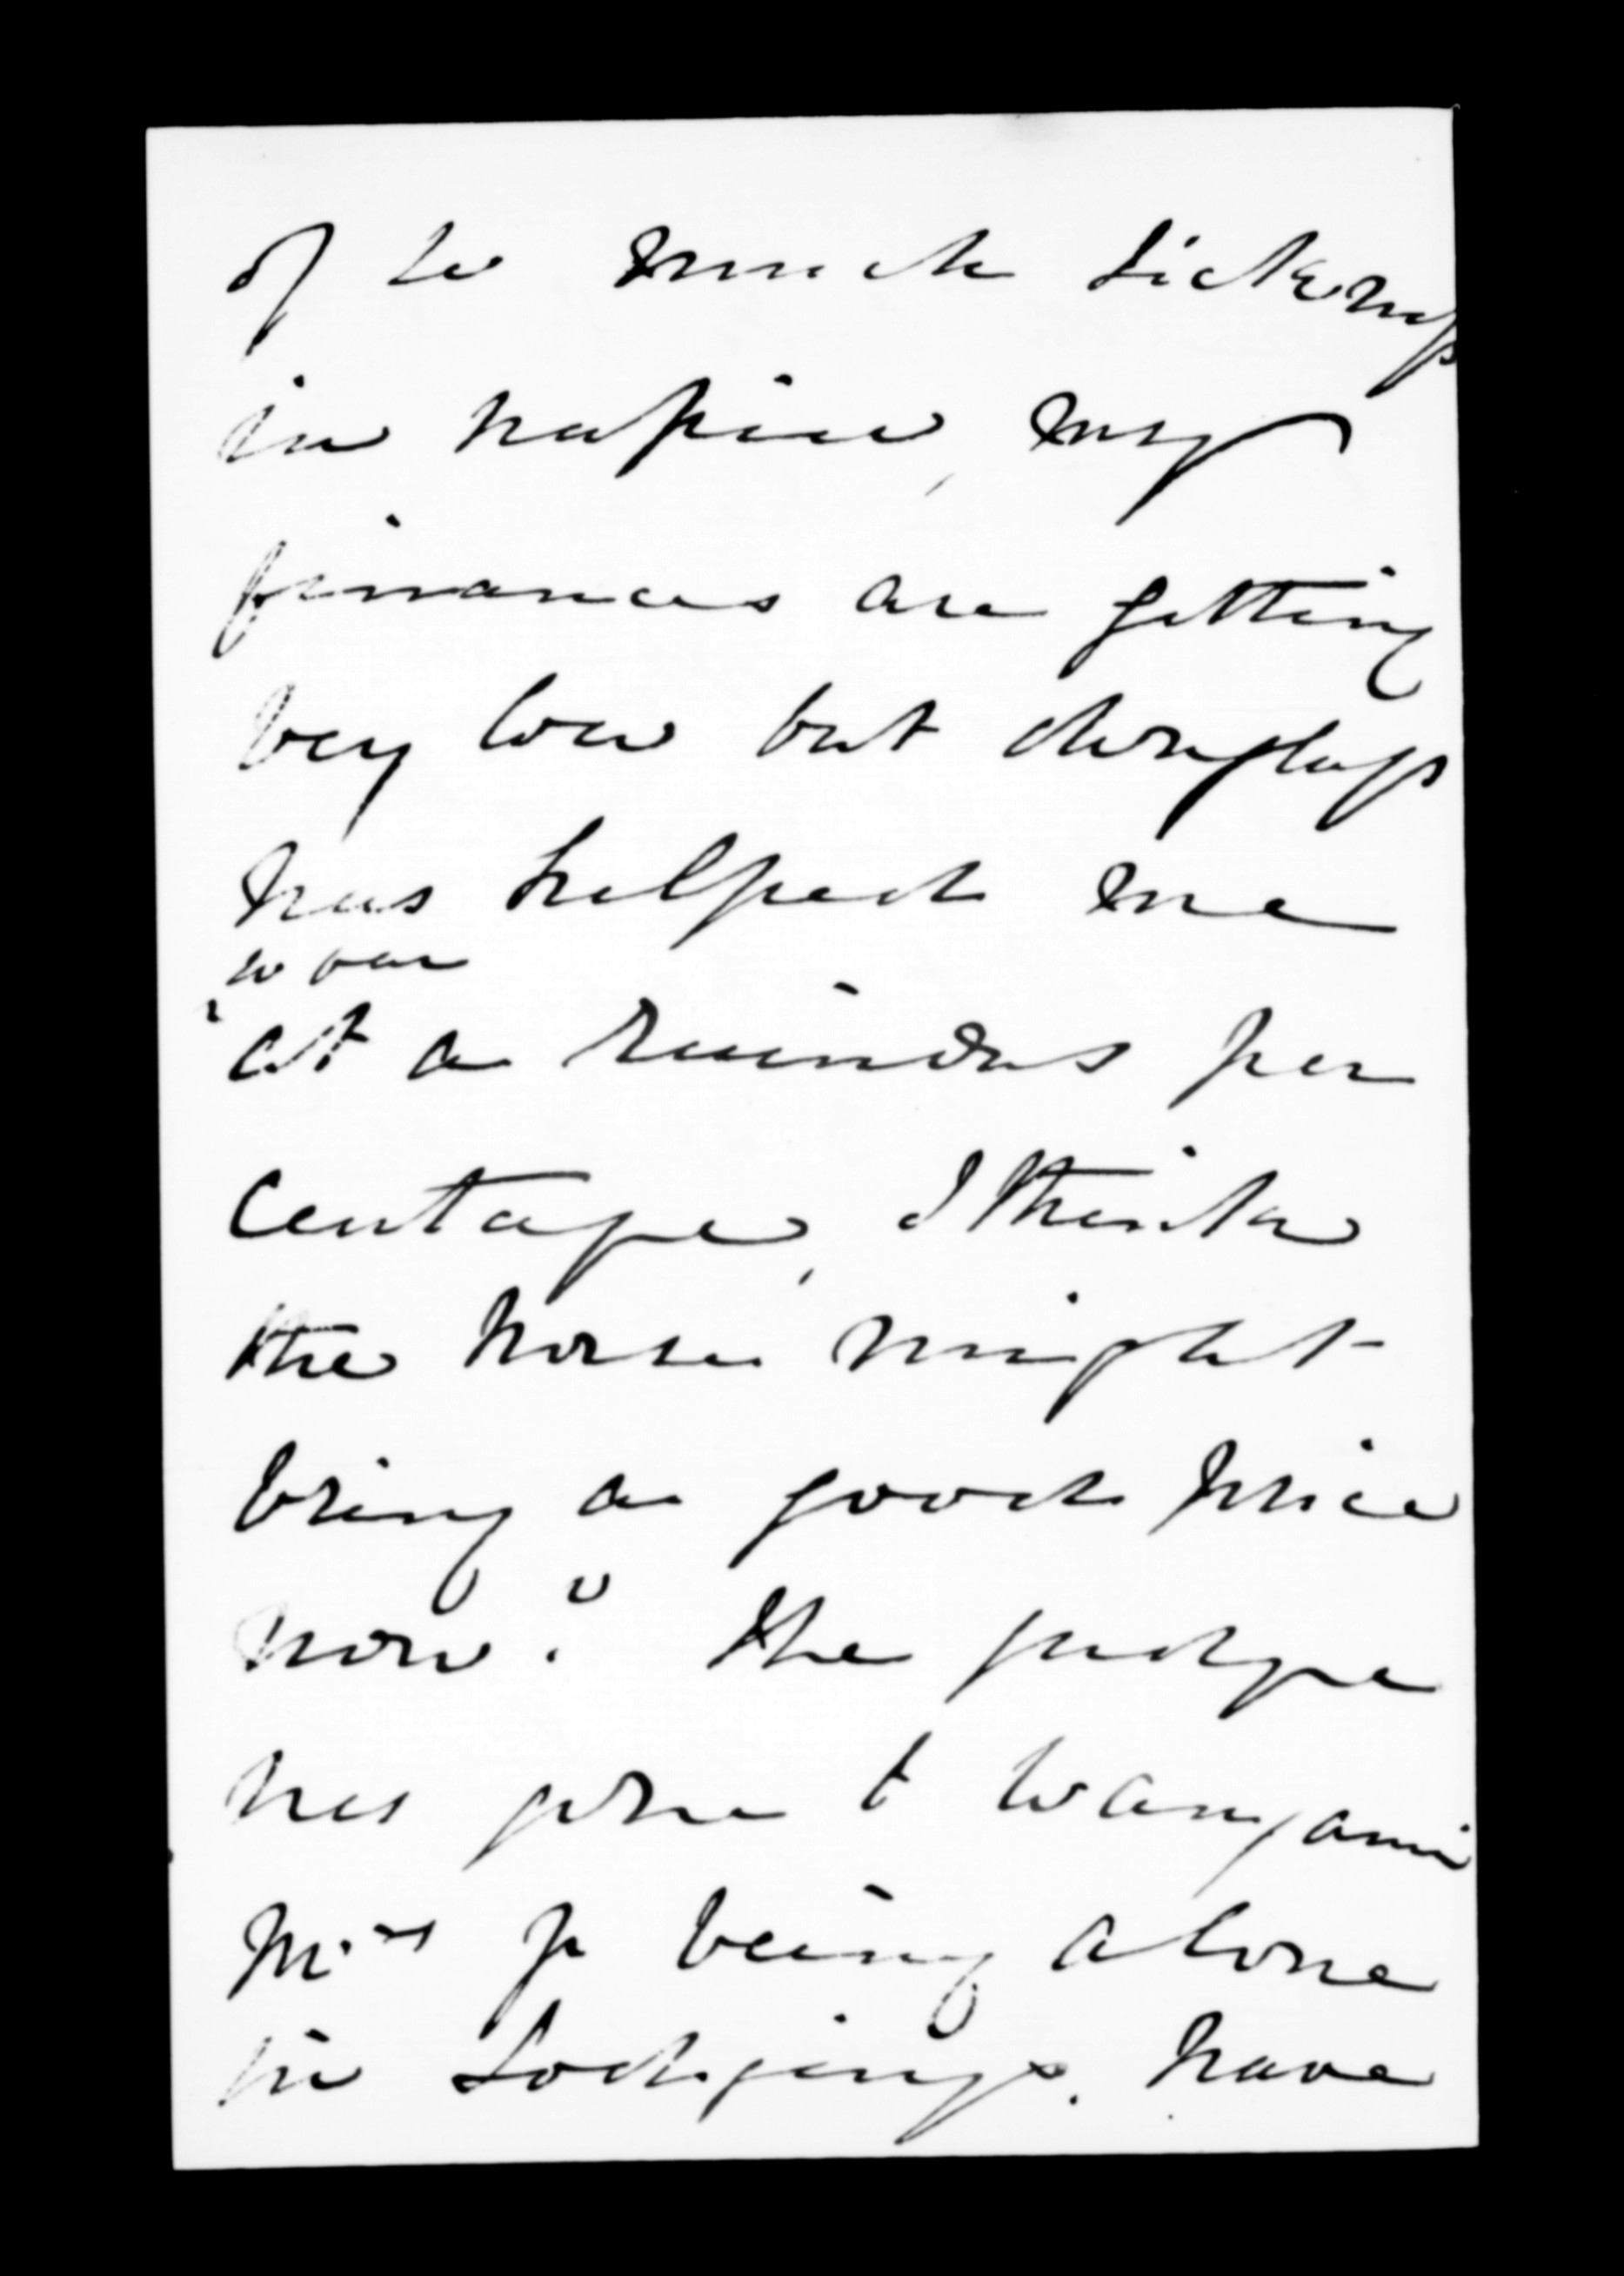 of so much sickness
in napier, my
finances are getting
very low but douglass
has helped me
to over
at a ruinous per
centage, I think
the horse might
bring a good price
now." The judge
has gone to Wanganui
Mrs J being alone
in Lodgings. have